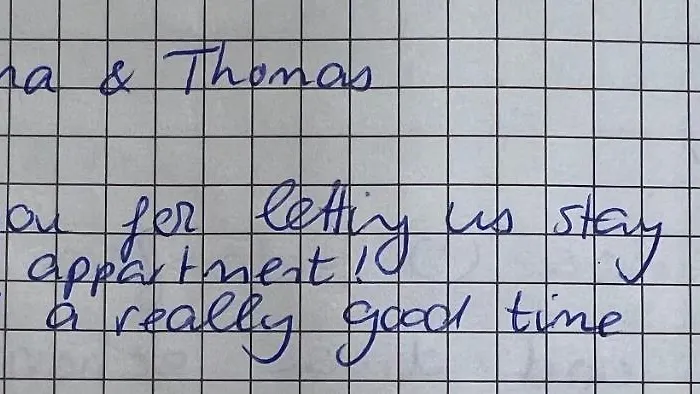 na & Thomas
ou for letting us stay
appartment!
a really good time